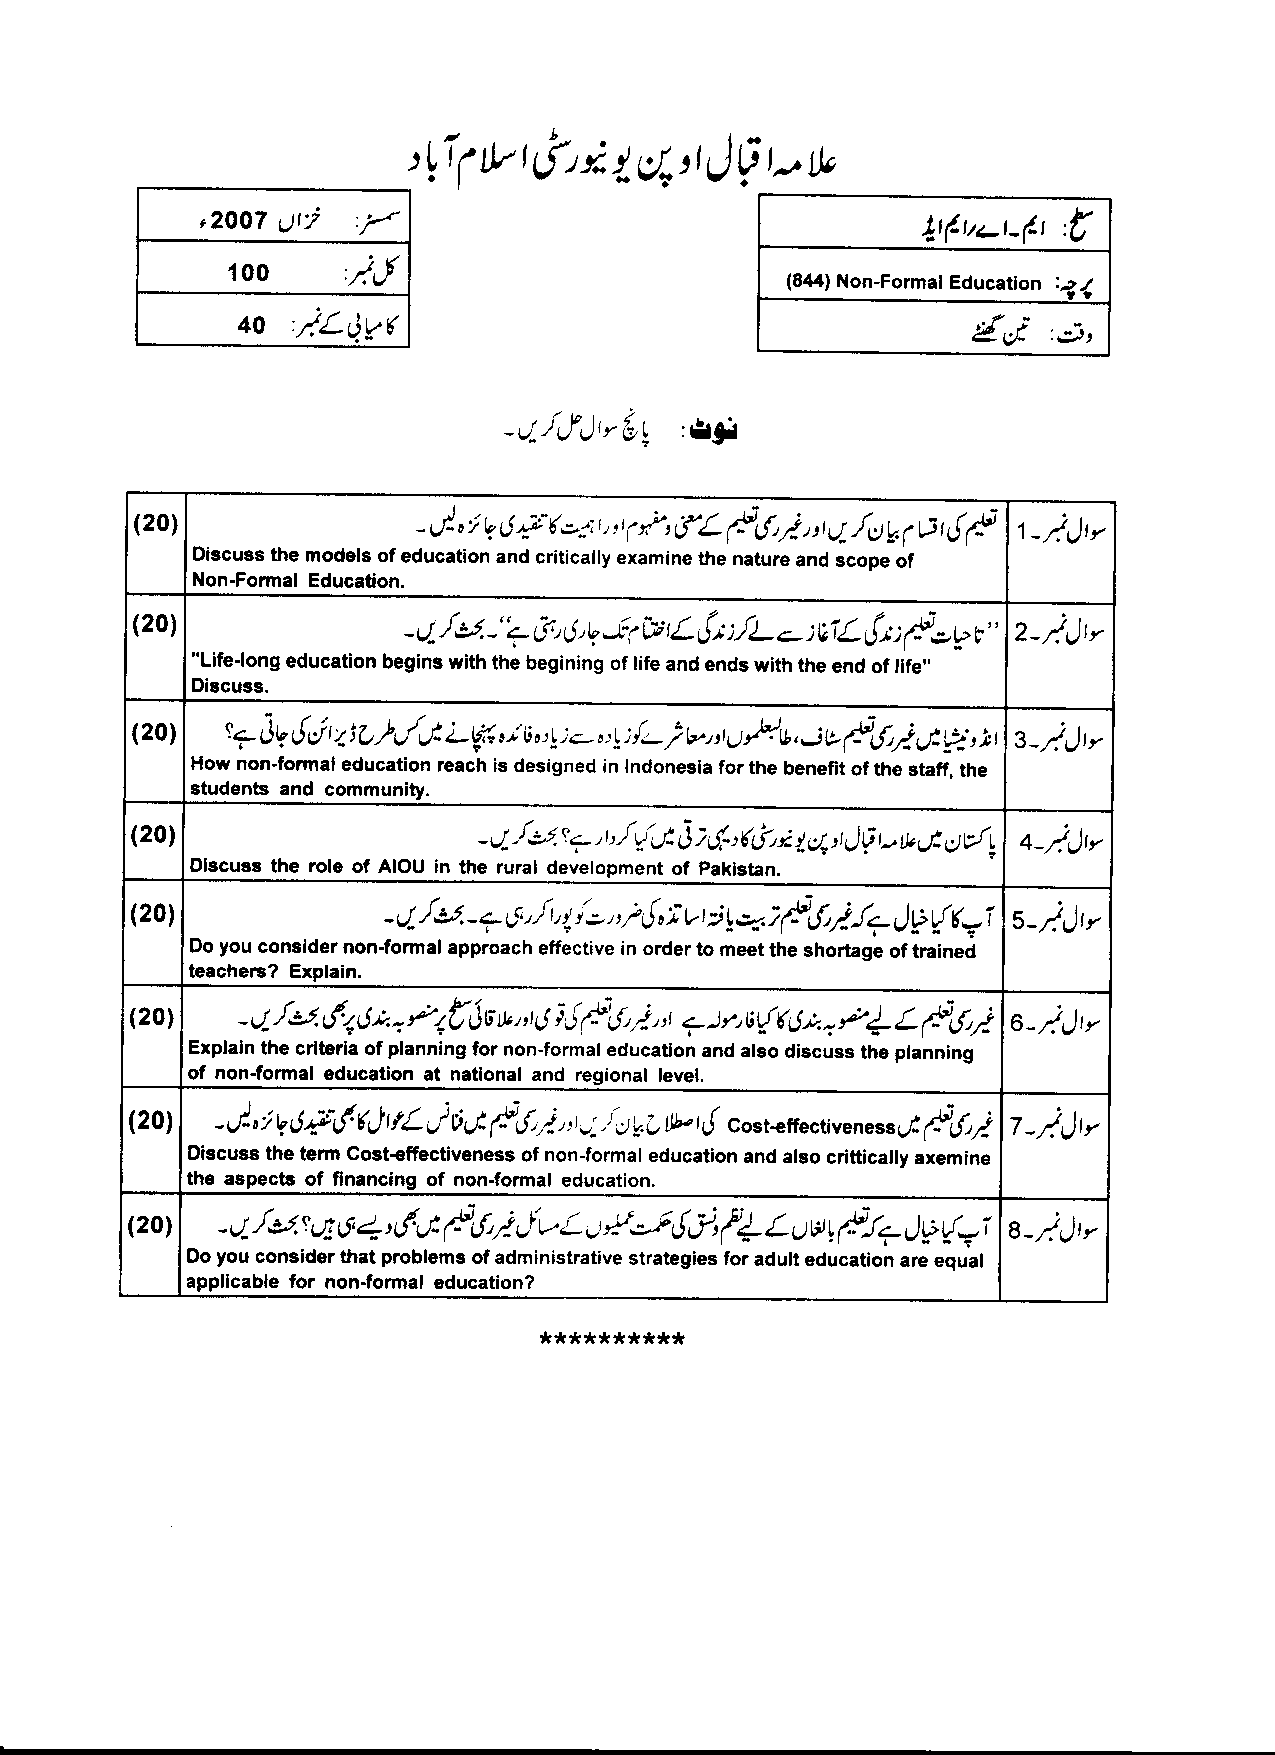 علامہ اقبال اوپن یونیورسٹی اسلام آباد
سطح: ایم۔اے/ایم ایڈ
سمسٹر: خزاں 2007ء
پرچہ: Non-Formal Education (844)
کل نمبر: 100
وقت: تین گھنٹے
کامیابی کے نمبر: 40
نوٹ: پانچ سوال حل کریں۔
سوال نمبر۔1 تعلیم کی اقسام بیان کریں اور غیر رسمی تعلیم کے معنی و مفہوم اور اہمیت کا تنقیدی جائزہ لیں۔ (20)
Discuss the models of education and critically examine the nature and scope of
Non-Formal Education.
سوال نمبر۔2 "تاحیات تعلیم زندگی کے آغاز سے لے کر زندگی کے اختتام تک جاری رہتی ہے"۔ بحث کریں۔ (20)
"Life-long education begins with the begining of life and ends with the end of life"
Discuss.
سوال نمبر۔3 انڈونیشیا میں غیر رسمی تعلیم سٹاف، طالبعلموں اور معاشرے کو زیادہ سے زیادہ فائدہ پہنچانے میں کس طرح ڈیزائن کی جاتی ہے؟ (20)
How non-formal education reach is designed in Indonesia for the benefit of the staff, the
students and community.
سوال نمبر۔4 پاکستان میں علامہ اقبال اوپن یونیورسٹی کا دیہی ترقی میں کیا کردار ہے؟ بحث کریں۔ (20)
Discuss the role of AIOU in the rural development of Pakistan.
سوال نمبر۔5 آپ کا کیا خیال ہے کہ غیر رسمی تعلیم تربیت یافتہ اساتذہ کی ضرورت کو پورا کر رہی ہے۔ بحث کریں۔ (20)
Do you consider non-formal approach effective in order to meet the shortage of trained
teachers? Explain.
سوال نمبر۔6 غیر رسمی تعلیم کے لیے منصوبہ بندی کا کیا فارمولہ ہے اور غیر رسمی تعلیم کی قومی اور علاقائی سطح پر منصوبہ بندی پر بھی بحث کریں۔ (20)
Explain the criteria of planning for non-formal education and also discuss the planning
of non-formal education at national and regional level.
سوال نمبر۔7 غیر رسمی تعلیم میں Cost-effectiveness کی اصطلاح بیان کریں اور غیر رسمی تعلیم میں فنانس کے عوامل کا بھی تنقیدی جائزہ لیں۔ (20)
Discuss the term Cost-effectiveness of non-formal education and also crittically axemine
the aspects of financing of non-formal education.
سوال نمبر۔8 آپ کیا خیال ہے کہ تعلیم بالغاں کے لیے نظم و نسق کی حکمت عملیوں کے مسائل غیر رسمی تعلیم میں بھی ویسے ہی ہیں؟ بحث کریں۔ (20)
Do you consider that problems of administrative strategies for adult education are equal
applicable for non-formal education?
**********